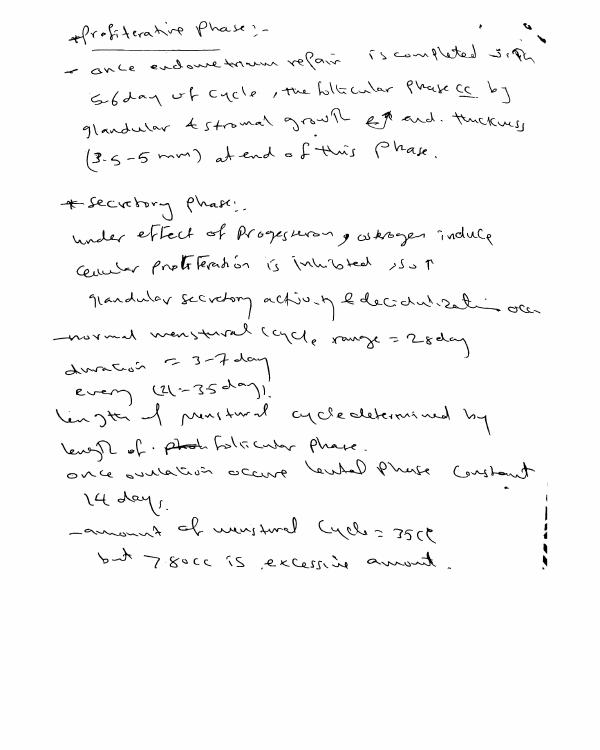 *Profiterative Phase:-
- once endometrium repair is completed with
5-6 day of cycle, the follicular Phase cc by
glandular & stromal growth & ↑ end. thickness
(3.5-5 mm) at end of this Phase.
* Secretory Phase:.
under effect of Progesteron, oestrogen induce
cellular proliferation is inhibited, so ↑
glandular secretory activity & decidulization occur
-normal menstural cycle range = 28day
duration = 3-7 day
every (21-35 day).
length of menstural cycle determined by
length of follicular phase.
once ovulation occure leutal Phase Constant
14 days.
-amount of menstural Cycle = 35cc
but > 80cc is excessive amount.